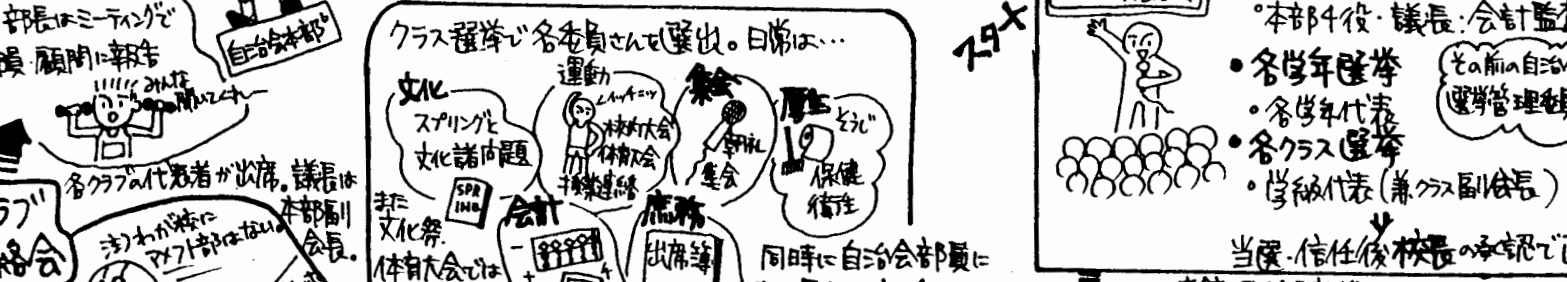 部長はミーティングで
員・顧問に報告
自治会本部
みんな
聞いてくれー
各クラブの代表者が出席。議長は
本部副
会長。
ラブ
絡会
注)わが校に
アメフト部はない。
クラス選挙で各委員さんを選出。日常は…
文化
スプリングと
文化諸問題
SPR
ING
運動
イッチニッ
校内大会
体育大会
授業連絡
集会
朝礼
集会
厚生
そうじ
保健
衛生
また
文化祭
体育大会では
会計
庶務
出席簿
同時に自治会部員に
スタメ
本部4役・議長・会計監査
・各学年選挙
・各学年代表
・各クラス選挙
・学級代表(兼クラス副会長)
その前の自治
選挙管理委員
当選・信任後校長の承認で